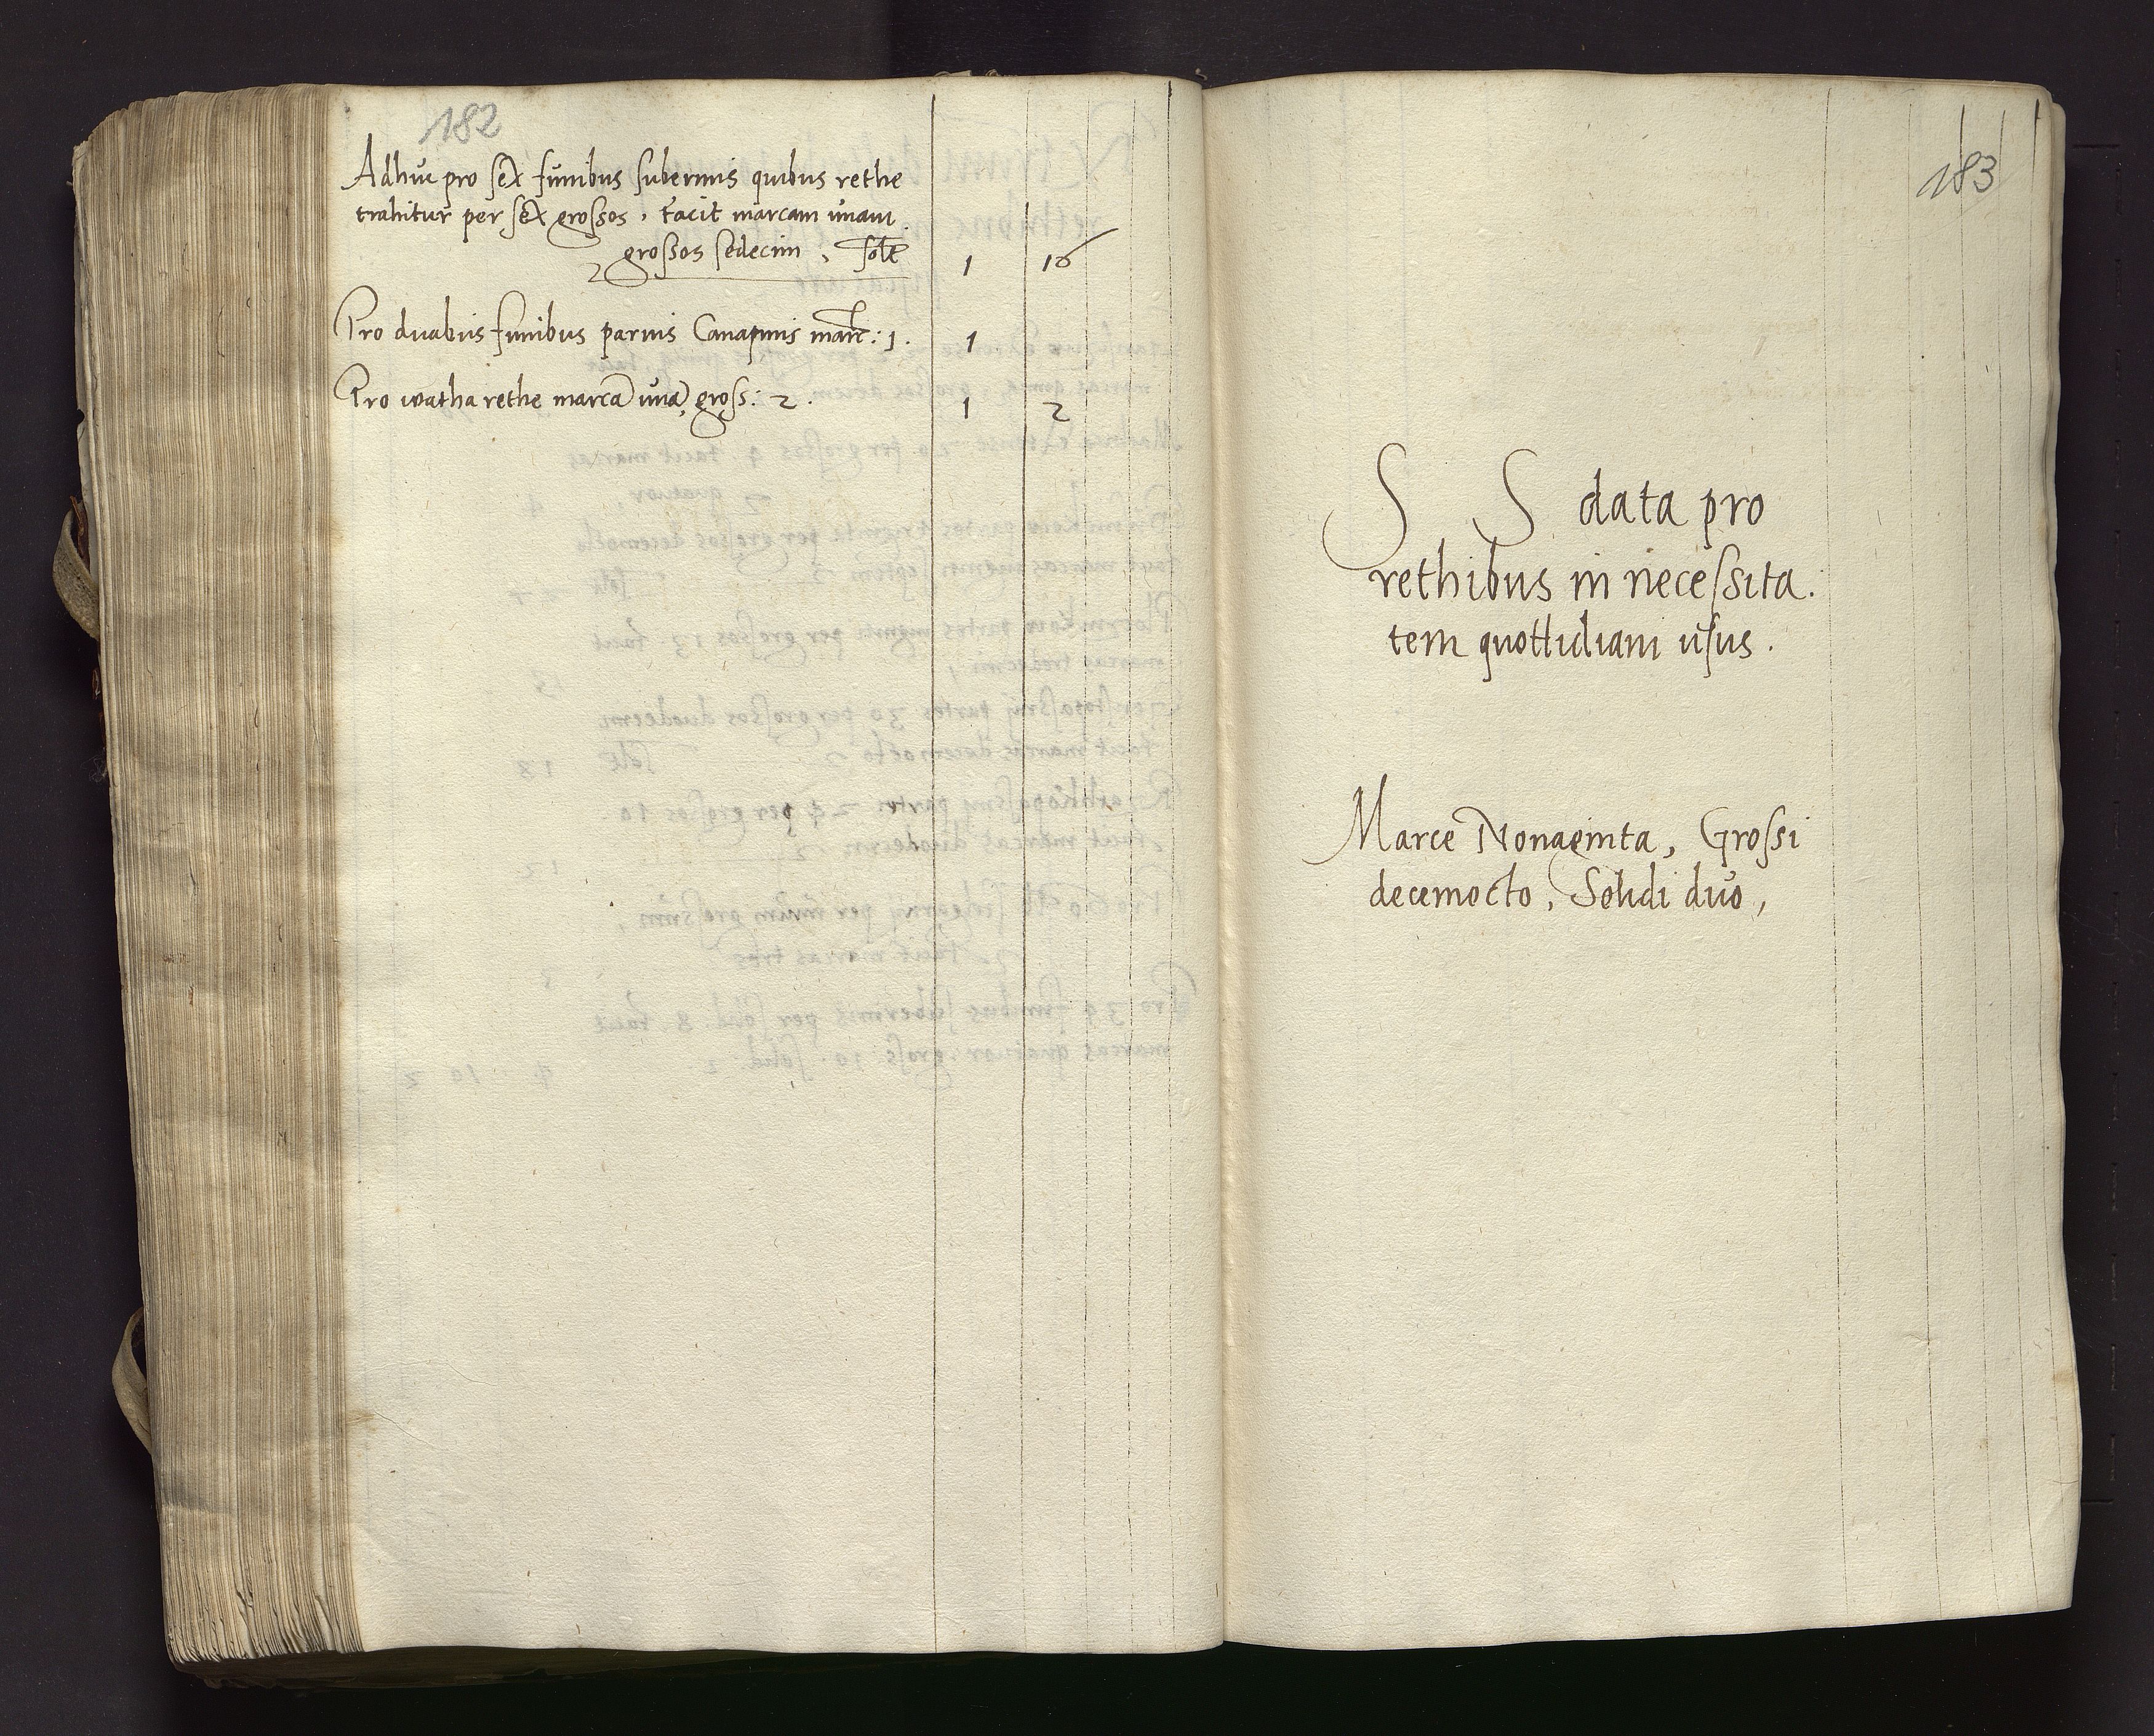 182
Adhuc pro sex funibus suberinis quibus rethe
trahitur per sex grossos, facit marcam unam
grossos sedecim, 1 16
Pro duabus funibus parvis Canapinis marc: 1. 1
Pro watha rethe marcā unā, gross: 2. 1 2
183
S S data pro
rethibus in necessita.
tem quottidiani usus.
Marce Nonaginta, Grossi
decemocto, Solidi duo,